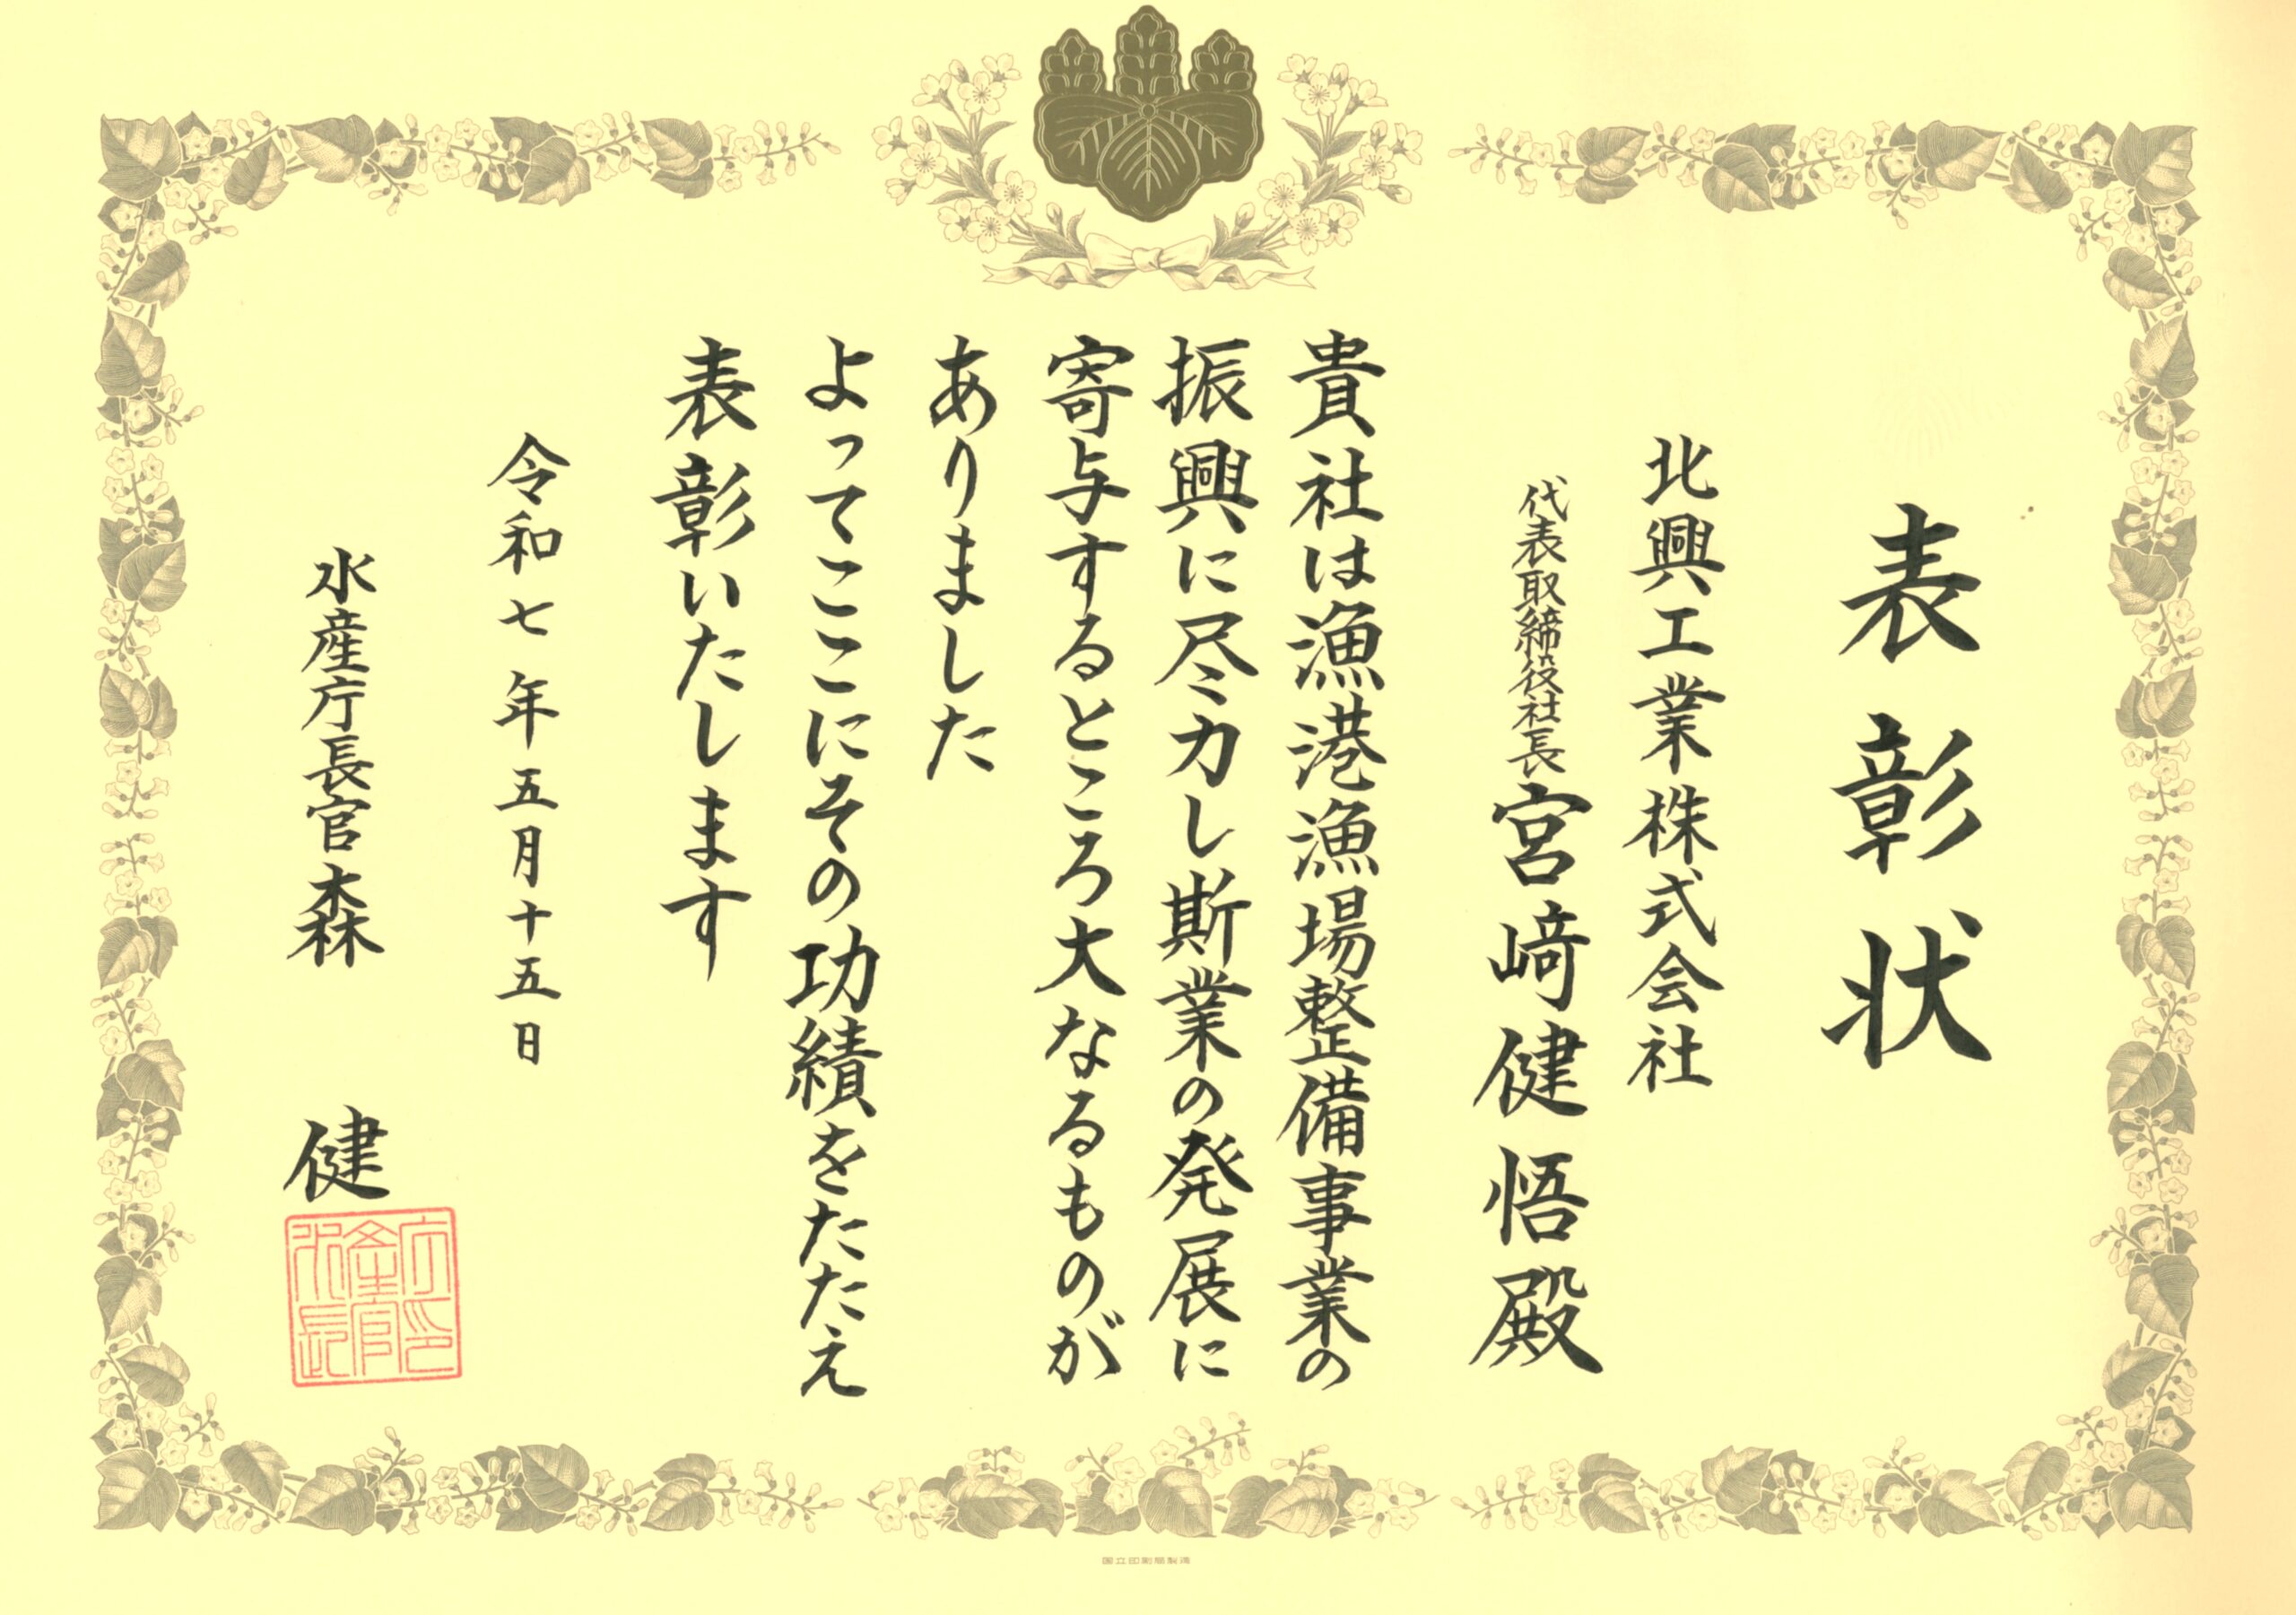 表彰状
北興工業株式会社
代表取締役社長宮﨑健悟殿
貴社は漁港漁場整備事業の
振興に尽力し斯業の発展に
寄与するところ大なるものが
ありました
よってここにその功績をたたえ
表彰いたします
令和七年五月十五日
水産庁長官森 健
水産庁長官印
国立印刷局製造